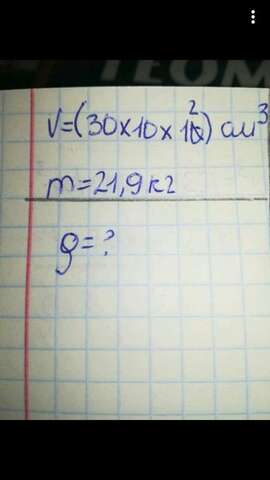 ТЕОМ
V=(30×10×12) см³
m=21,9кг
ρ=?